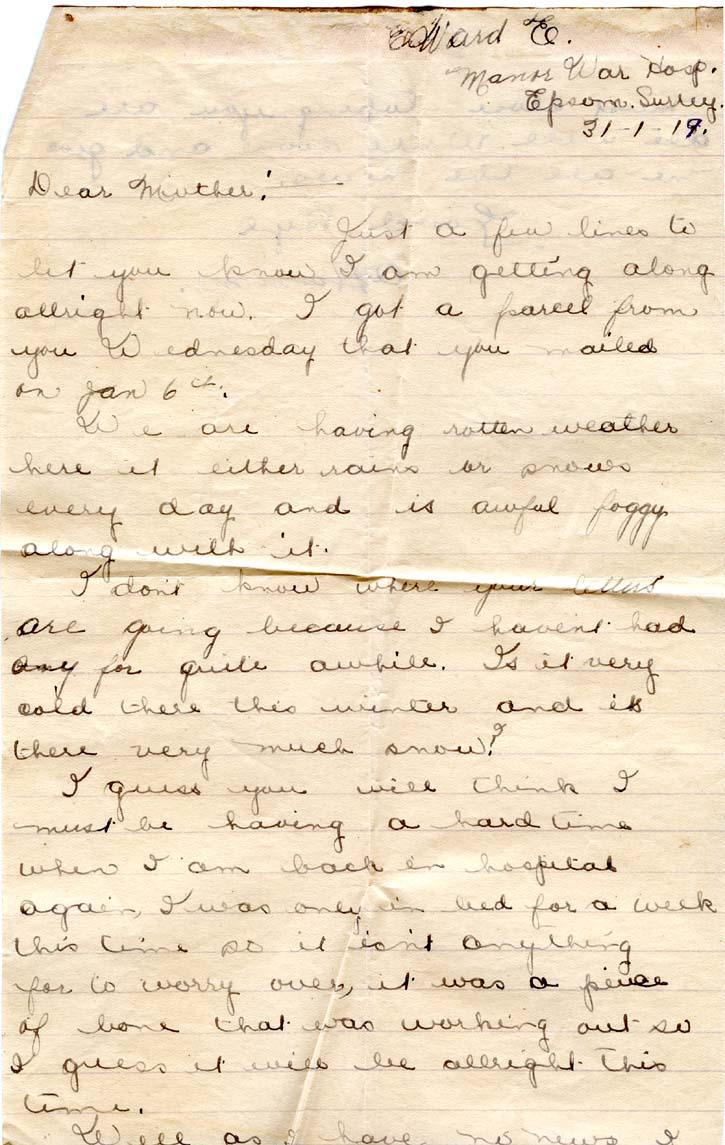 Edward E.
Manor War Hosp.
Epsom. Surrey.
31-1-19.
Dear Mother!
Just a few lines to
let you know I am getting along
allright now. I got a parcel from
you Wednesday that you mailed
on Jan 6th.
We are having rotten weather
here it either rains or snows
every day and is awful foggy
along with it.
I don't know where your letters
are going because I havent had
any for quite awhile. Is it very
cold there this winter and is
there very much snow?
I guess you will think I
must be having a hard time
when I am back in hospital
again, I was only in bed for a week
this time so it isn't anything
for to worry over, it was a peice
of bone that was working out so
I guess it will be allright this
time.
Well as I have no news I